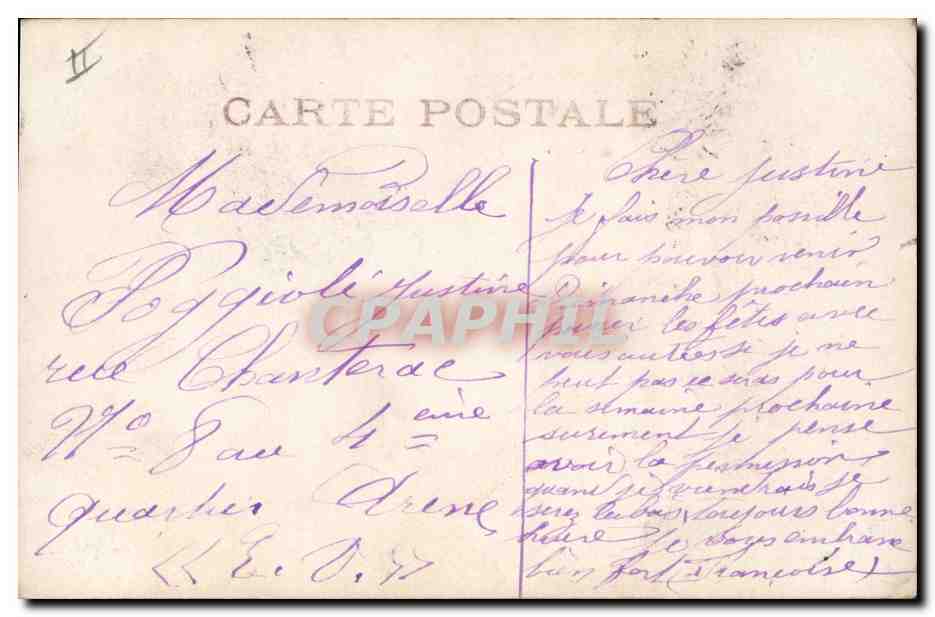 II
CARTE POSTALE
Mademoiselle
Poggioli Justine
rue Chanterac
No 8 au 4 ème
quartier Arenc
<< E. V. >>
CPAPHIL
Chere Justine
Je fais mon possible
pour pouvoir venir
Dimanche prochain
passer les fêtes avec
vous autres si je ne
peut pas ce seras pour
la semaine prochaine
surement je pense
avoir la permission
quand je viendrais je
serez labas toujours bonne
heure Je vous embrasse
bien fort (Françoise)